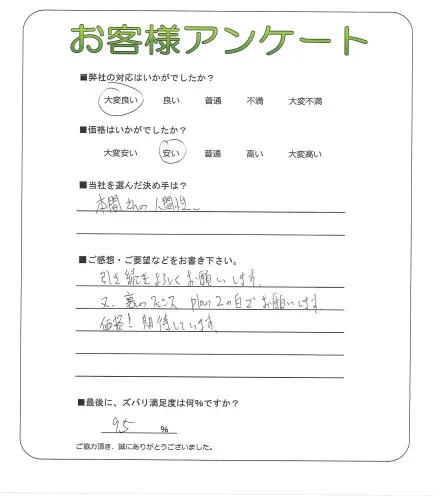 お客様アンケート
■弊社の対応はいかがでしたか？
大変良い 良い 普通 不満 大変不満
■価格はいかがでしたか？
大変安い 安い 普通 高い 大変高い
■当社を選んだ決め手は？
本間さんの人間性。
■ご感想・ご要望などをお書き下さい。
引き続きよろしくお願いします。
又、裏のフェンス plan2の白でお願いします。
価格！期待しています。
■最後に、ズバリ満足度は何％ですか？
95 ％
ご協力頂き、誠にありがとうございました。